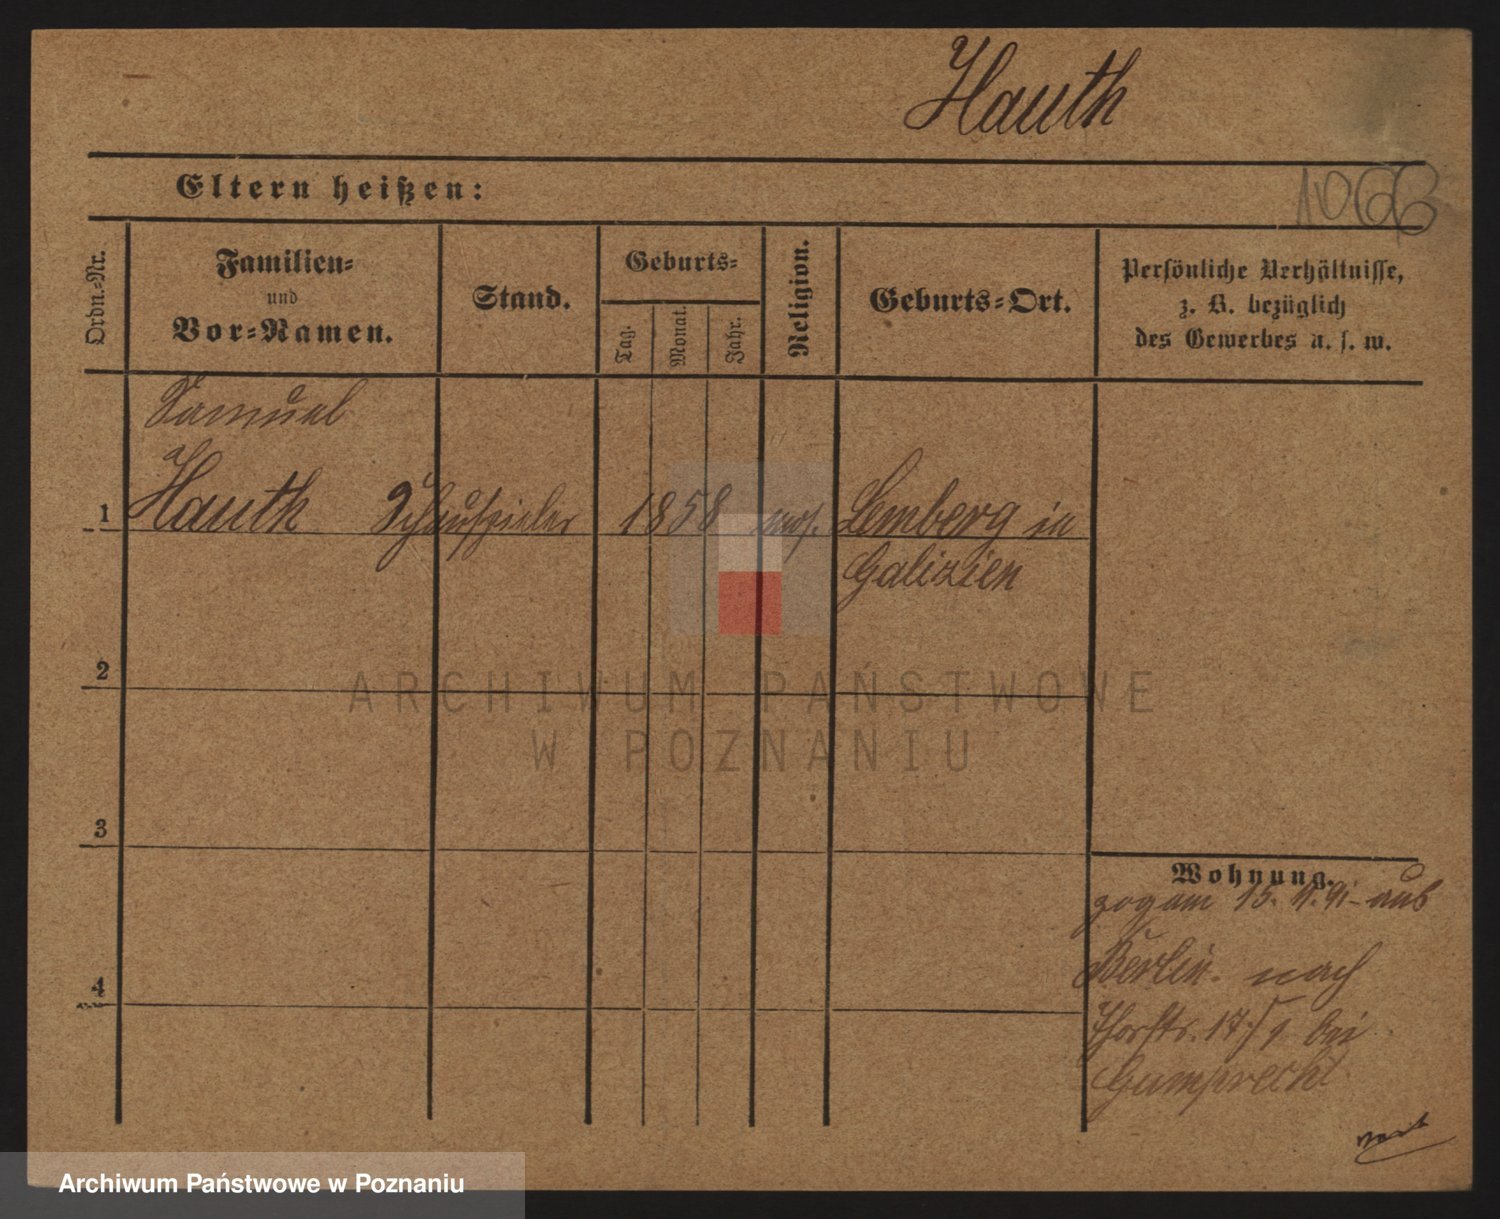 Hauth
Eltern heißen:
1066
Ordn.-Nr.
Familien-
und
Vor-Namen.
Stand.
Geburts-
Tag.
Monat.
Jahr.
Religion.
Geburts-Ort.
Persönliche Verhältnisse,
z. B. bezüglich
des Gewerbes u. s. w.
Samuel
1 Hauth Schauspieler 1858 mos. Lemberg in
Galizien
2
ARCHIWUM PAŃSTWOWE
W POZNANIU
3
Wohnung.
zog am 15. 11. 91 - aus
4
Berlin. nach
Thorstr. 17/I bei
Gumprecht
Archiwum Państwowe w Poznaniu